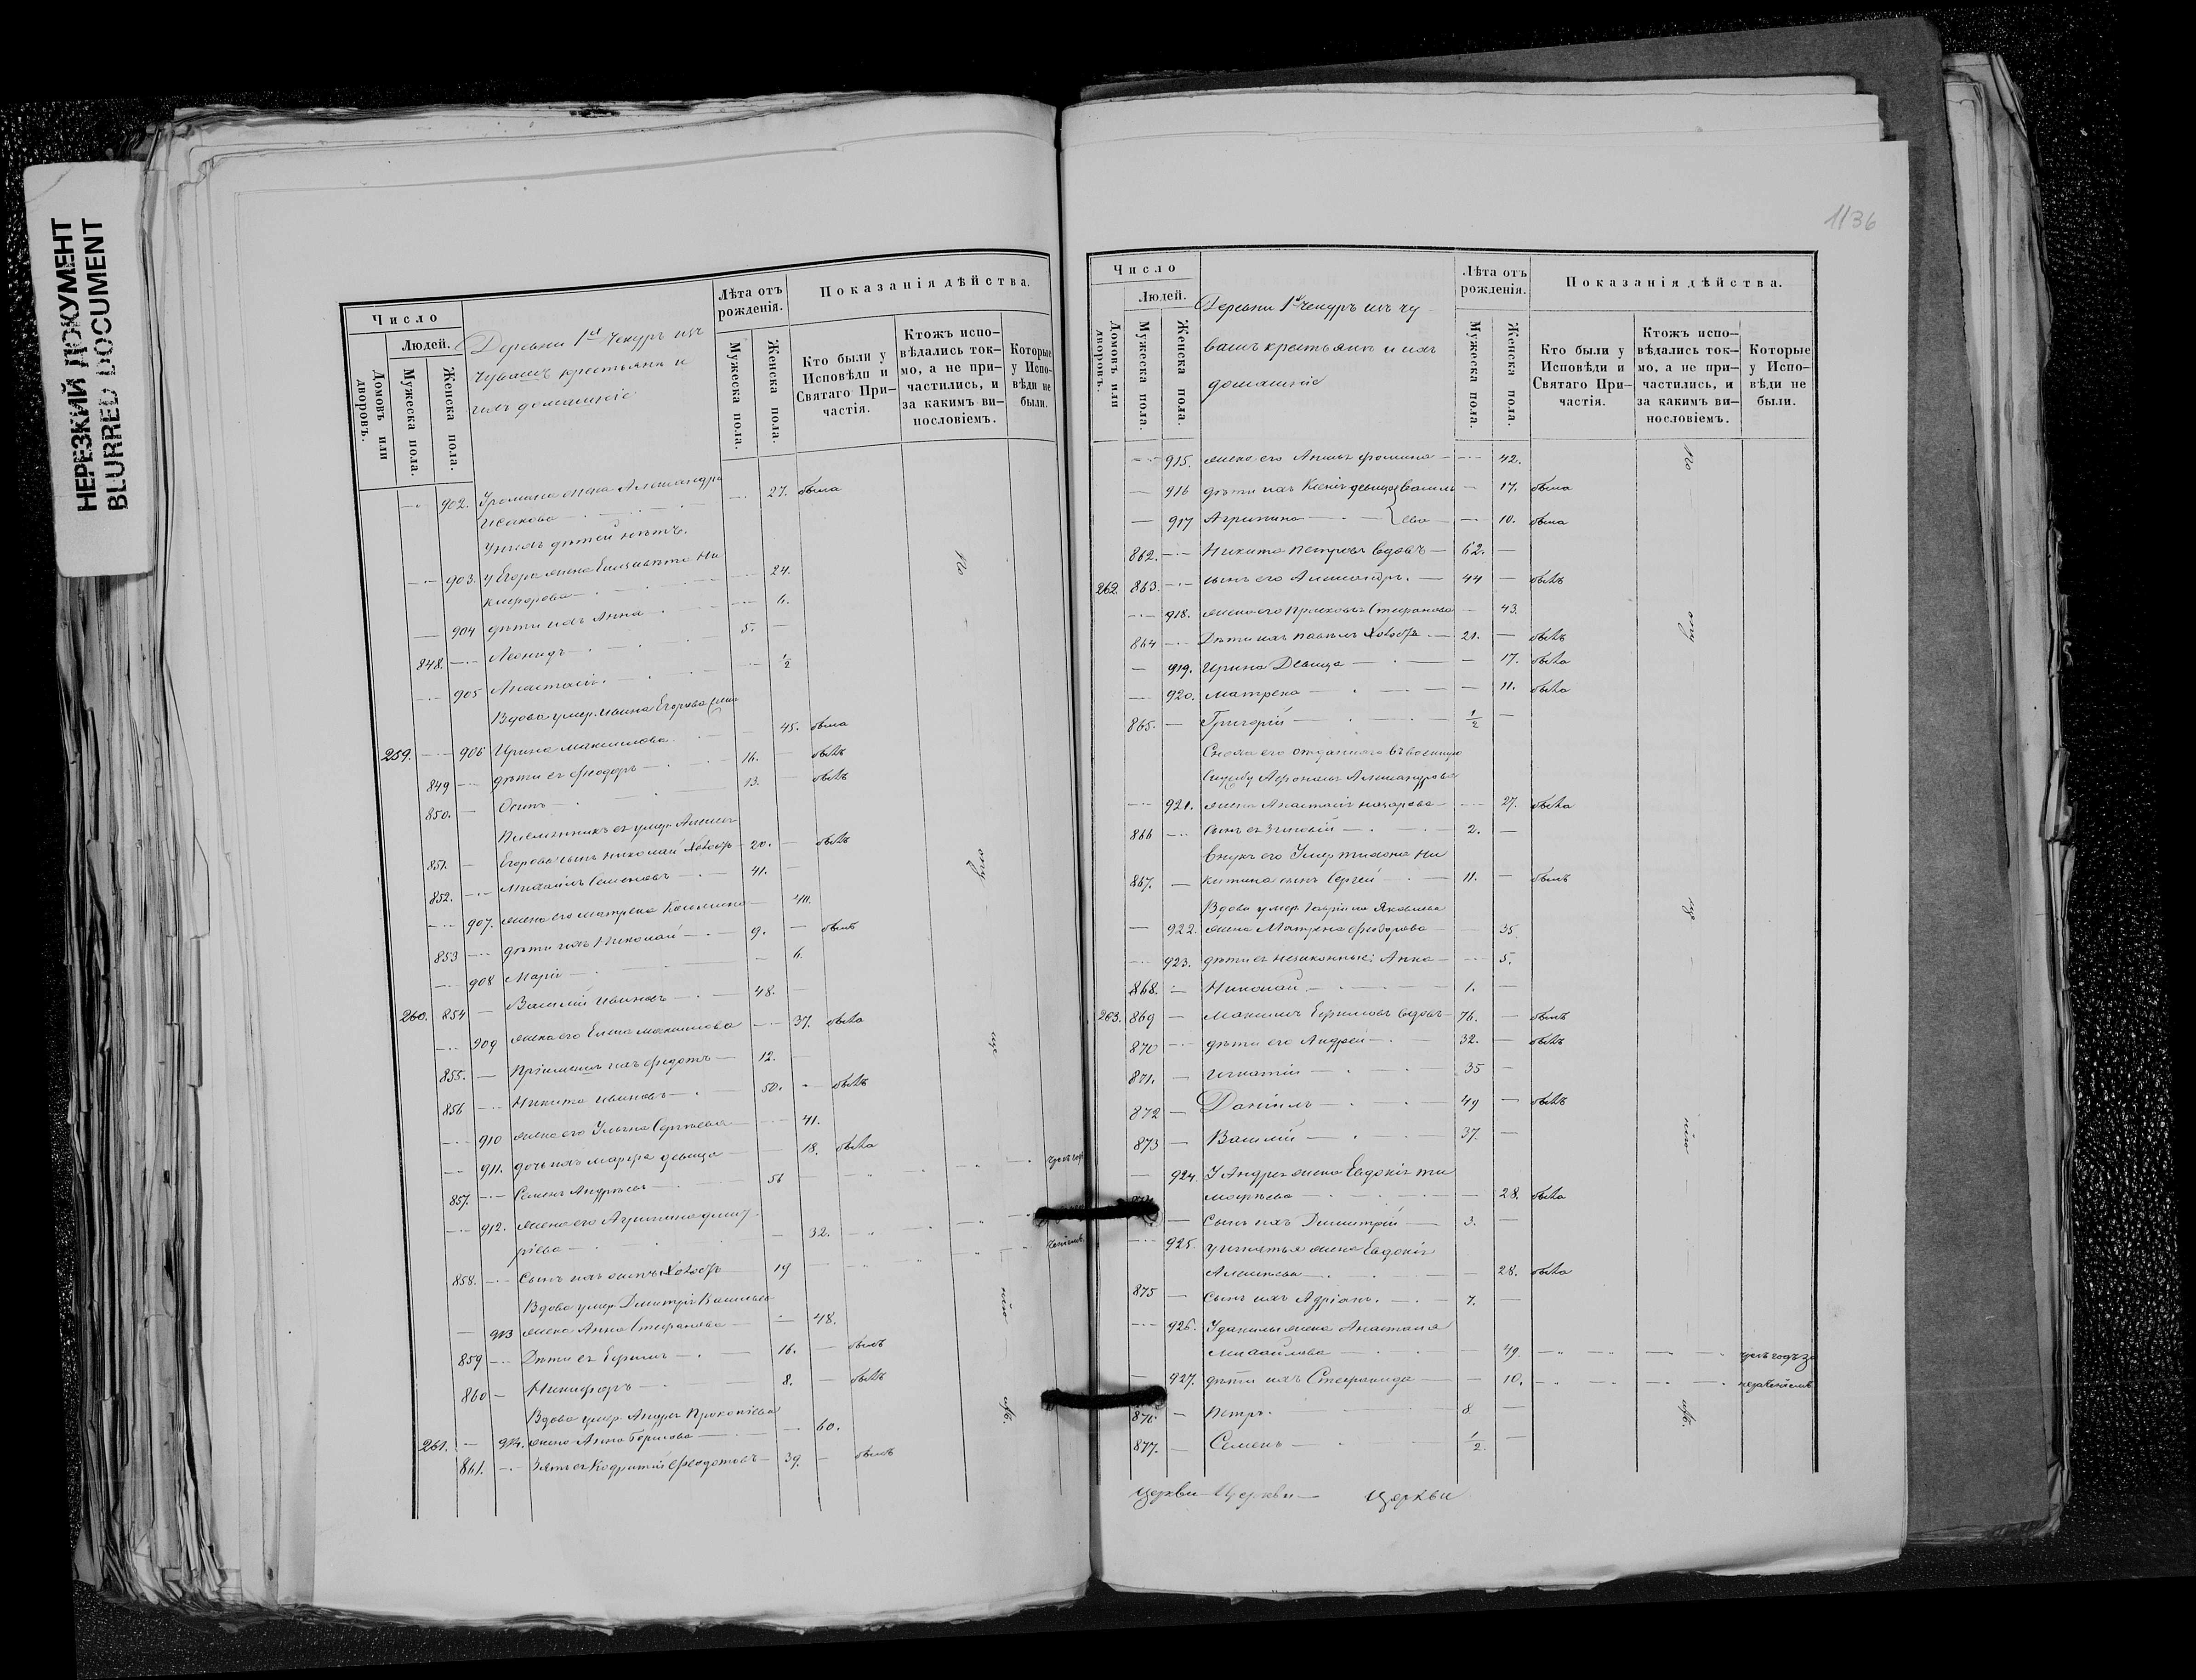 НЕРЕЗКИЙ ДОКУМЕНТ
BLURRED DOCUMENT
Число
Людей.
Домовъ или дворовъ.
Мужеска пола.
Женска пола.
Деревни 1й Чекуръ изъ
чувашъ крестьяне и
ихъ домашніе
Лѣта отъ рожденія.
Мужеска пола.
Женска пола.
Показанія дѣйства.
Кто были у Исповѣди и Святаго При-частія.
Ктожъ испо-вѣдались ток-мо, а не при-частились, и за какимъ ви-нословіемъ.
Которые у Испо-вѣди не были.
902. жена Александра 27. была
Исакова
У нихъ дѣтей нѣтъ.
903. У Егора жена Елизавета Ни
кифорова 24.
904 дѣти ихъ Анна 6.
848. Леонидъ 5.
905 Анастасія 1/2
Вдова умер. Ивана Егорова жена
259. 906 Ирина Максимова 45. была
849 дѣти ея Феодоръ 16. былъ
850. Осипъ 13. былъ
Племянникъ ея умер. Алексея
851. Егорова сынъ Николай холостъ 20. былъ
852. Михаилъ Семеновъ 41.
907. жена его Матрена Косьмина 40.
853 дѣти ихъ Николай 9. былъ
908 Марія 6.
260. 854 Василій Ивановъ 48.
909 жена его Елена Максимова 37. была
855. Пріемышъ ихъ Федотъ 12.
856 Никита Ивановъ 50. былъ
910 жена его Ульяна Сергѣева 41.
911. дочь ихъ Марфа девица 18. была
857. Семенъ Андрѣевъ 56
912. жена его Агрипина Дмит
ріева 32.
858. Сынъ ихъ Осипъ холостъ 19
Вдова умер. Дмитрія Васильева
913 жена Анна Стефанова 48.
859 Дѣти ея Ефимъ 16. былъ
860 Никифоръ 8. былъ
Вдова умер. Андрея Прокопіева
261. 914. жена Анна Борисова 60.
861. Зять ея Кодратій Феодотовъ 39. былъ
По
опу
ще
нію
1136
Число
Людей.
Домовъ или дворовъ.
Мужеска пола.
Женска пола.
Деревни 1й Чекуръ изъ чу
вашъ крестьянъ и ихъ
домашніе
Лѣта отъ рожденія.
Мужеска пола.
Женска пола.
Показанія дѣйства.
Кто были у Исповѣди и Святаго При-частія.
Ктожъ испо-вѣдались ток-мо, а не при-частились, и за какимъ ви-нословіемъ.
Которые у Испо-вѣди не были.
915. жена его Анна Фомина 42.
916 дѣти ихъ Ксенія девица 17. была
917 Агрипина 10. была
862. Никита Петровъ вдовъ 62.
262. 863. сынъ его Александръ. 44 былъ
918. жена его Прасковья Стефанова 43.
864 Дѣти ихъ Павелъ холостъ 21. былъ
919. Ирина Девица 17. была
920. Матрена 11. была
865. Григорій 1/2
Сноха его отданнаго въ военную
службу Афанасья Александрова
921. жена Анастасія Назарова 27. была
866 Сынъ ея Зиновій 2.
Внукъ его Умер Тихона Ни
867. китина сынъ Сергей 11. былъ
Вдова умер. Гавріила Яковлева
922. жена Матрена Феодорова 35
923. дѣти ея незаконные: Анна 5.
868. Николай 1.
263. 869 Максимъ Ефимовъ вдовъ 76. былъ
870 дѣти его Андрей 32. былъ
871. Игнатій 35
872 Даніилъ 49 былъ
873 Василій 37.
924. У Андрея жена Евдокія Ти
мофѣева 28. была
874 Сынъ ихъ Димитрій 3.
925. у Игнатья жена Евдокія
Алексѣева 28. была
875 Сынъ ихъ Адріанъ. 7.
926. У Данилы жена Анастасія
Михайлова 49.
927. дѣти ихъ Стефанида 10.
876. Петръ. 8
877. Семенъ 1/2
По
опу
ще
нію
Церкви Церкви Церкви